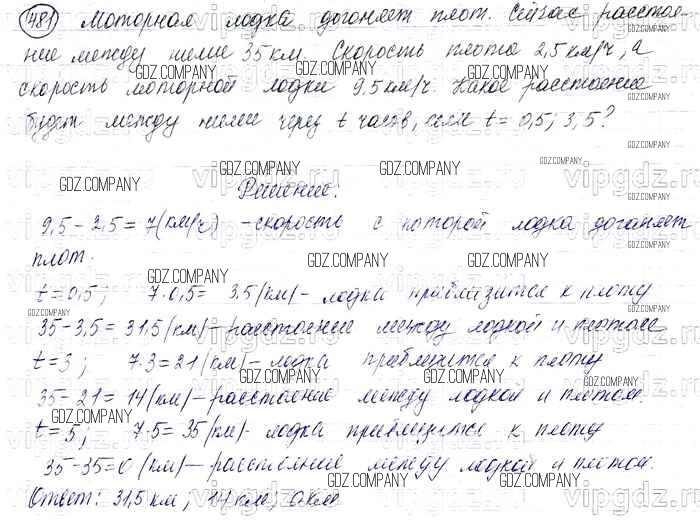 481 Моторная лодка догоняет плот. Сейчас расстоя-
ние между ними 35 км. Скорость плота 2,5 км/ч, а
GDZ.COMPANY
скорость моторной лодки 9,5 км/ч. Какое расстояние
GDZ.COMPANY
будет между ними через t часов, если t = 0,5; 3; 5?
GDZ.COMPANY
Решение:
9,5 - 2,5 = 7 (км/ч) - скорость с которой лодка догоняет
плот.
GDZ.COMPANY
t = 0,5; 7·0,5 = 3,5 (км) - лодка приблизится к плоту
35 - 3,5 = 31,5 (км) - расстояние между лодкой и плотом
t = 3; 7·3 = 21 (км) - лодка приблизится к плоту
GDZ.COMPANY
35 - 21 = 14 (км) - расстояние между лодкой и плотом.
GDZ.COMPANY
t = 5; 7·5 = 35 (км) - лодка приблизится к плоту
35 - 35 = 0 (км) - расстояние между лодкой и плотом.
GDZ.COMPANY
Ответ: 31,5 км, 14 км, 0 км
vipgdz.ru